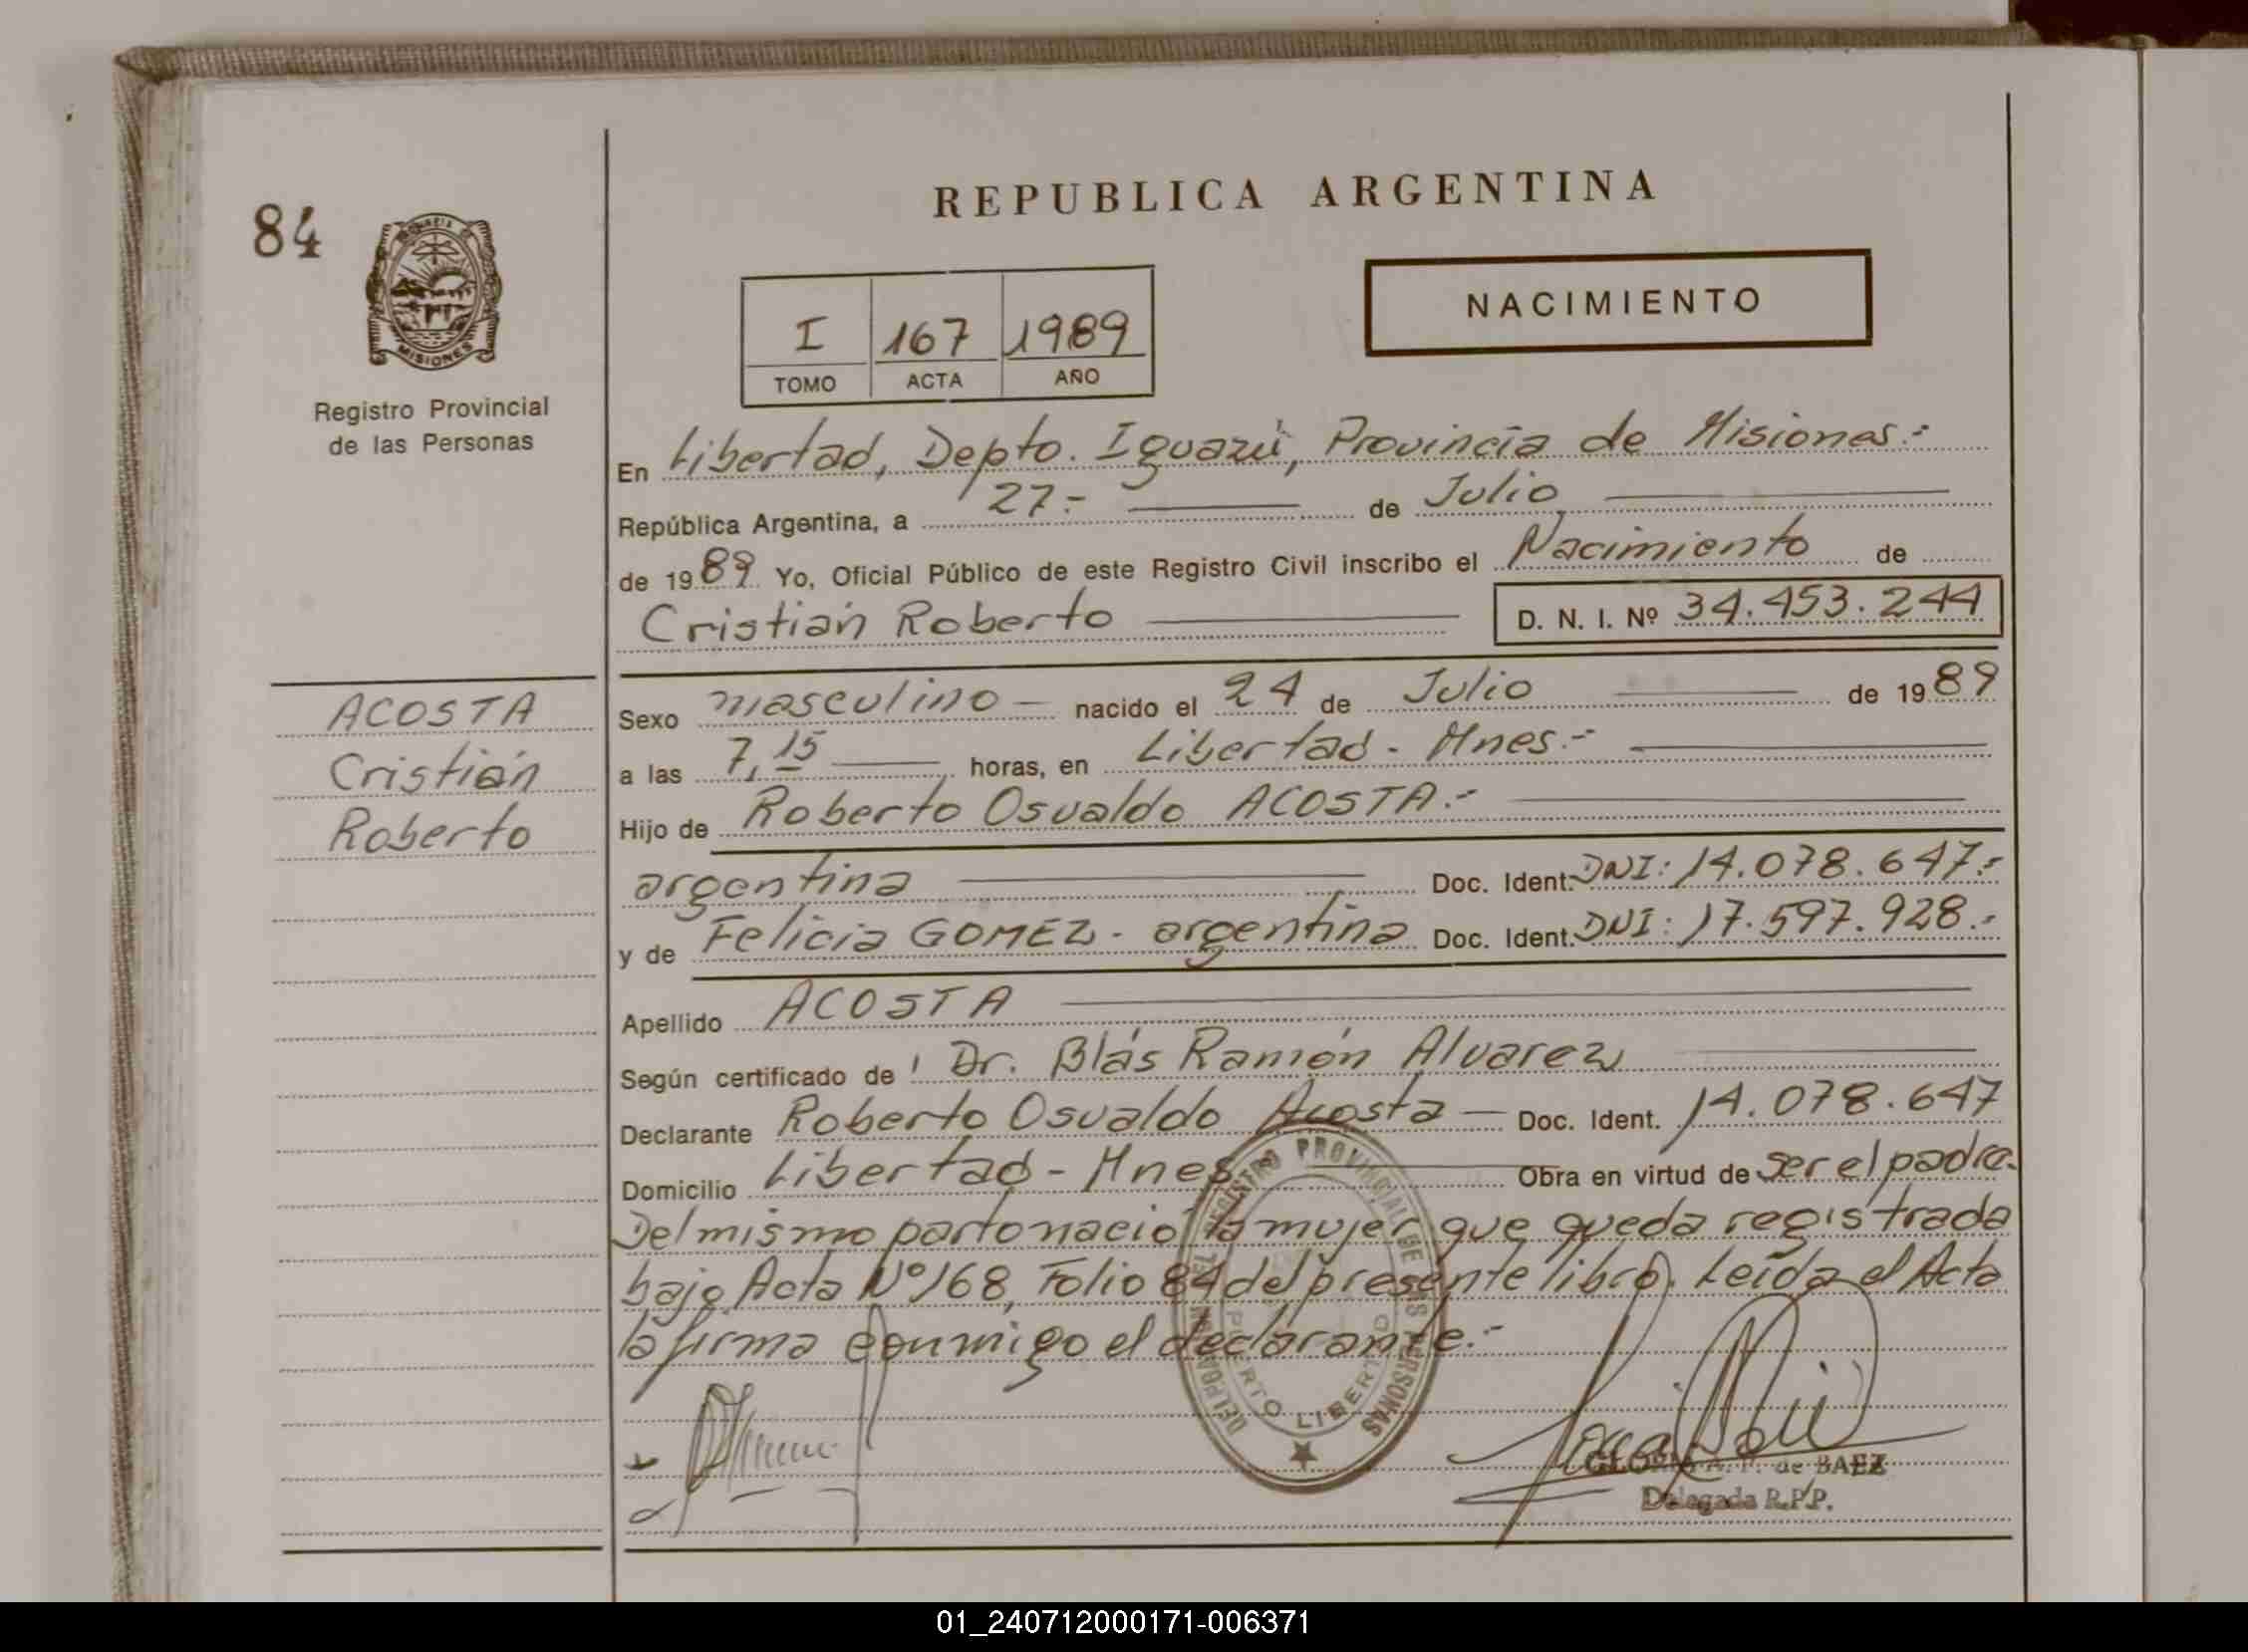 REPUBLICA ARGENTINA
84
MISIONES
Registro Provincial
de las Personas
I 167 1989
TOMO ACTA AÑO
NACIMIENTO
En Libertad, Depto. Iguazú, Provincia de Misiones.-
República Argentina, a 27.- de Julio
de 1989 Yo, Oficial Público de este Registro Civil inscribo el Nacimiento de
Cristián Roberto D. N. I. Nº 34.453.244
ACOSTA
Cristián
Roberto
Sexo masculino nacido el 24 de Julio de 1989
a las 7,15 horas, en Libertad - Mnes.-
Hijo de Roberto Osvaldo ACOSTA.-
argentina Doc. Ident. DNI: 14.078.647.-
y de Felicia GOMEZ - argentina Doc. Ident. DNI: 17.597.928.-
Apellido ACOSTA
Según certificado de Dr. Blás Ramón Alvarez
Declarante Roberto Osvaldo Acosta Doc. Ident. 14.078.647
Domicilio Libertad - Mnes Obra en virtud de ser el padre.
Del mismo parto nació la mujer que queda registrada
bajo Acta Nº 168, Folio 84 del presente libro. Leída el Acta
la firma conmigo el declarante.-
REGISTRO PROVINCIAL DE LAS PERSONAS
PUERTO LIBERTAD
GLORIA A. P. de BAEZ
Delegada R.P.P.
01_240712000171-006371